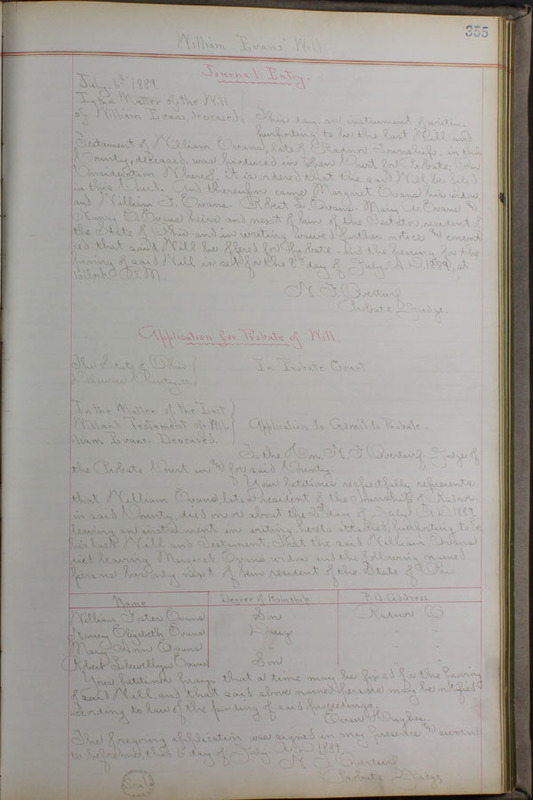 355
William Evans' Will
Journal Entry.
July 5th 1889.
In the Matter of the Will
of William Evans, deceased
This day, an instrument of writing
purporting to be the last Will and
Testament of William Evans, late of Radnor Township, in this
County, deceased, was produced in open Court for Probate. On
Consideration Whereof, it is ordered that the said Will be filed
in this Court. And thereupon came Margaret Evans his widow
and William F. Evans. Robert L. Evans. Mary A. Evans &
Evans heirs and next of kin of the Testator, resident of
the State of Ohio and in writing waived further notice & consent
ed that said Will be offered for Probate and the hearing for the
proving of said Will is set for the day of July A.D. 1889, at
o'clock M.
N. F. Overturf
Probate Judge.
Application for Probate of Will.
The State of Ohio
Delaware County, ss
In Probate Court
In the Matter of the Last
Will and Testament of Wil
liam Evans. Deceased.
Application to Admit to Probate.
To the Hon. N. F. Overturf Judge of
the Probate Court in & for said County.
Your petitioner respectfully represents
that William Evans, late a resident of the Township of Radnor
in said County, died on or about the 2d day of July A.D. 1889
leaving an instrument in writing, hereto attached, purporting to be
his last Will and Testament, that the said William Evans
died leaving Margaret Evans widow and the following named
persons his only next of kin resident of the State of Ohio
Name Degree of Kinship P.O. Address
William Foster Evans Son Radnor O
Nancy Elizabeth Evans Daug " "
Mary Ann Evans " " "
Robert Llewellyn Evans Son " "
Your petitioner prays that a time may be fixed for the proving
of said Will, and that said above named persons may be notified
according to law of the pending of said proceedings.
Owen Hughes.
The foregoing application was signed in my presence & sworn
to before me this 5 day of July A.D. 1889.
N. F. Overturf
Probate Judge
Seal